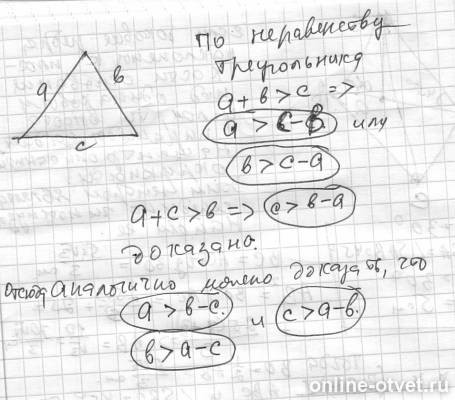 a
b
c
По неравенству
треугольника
a+b>c =>
a > c-b или
b > c-a
a+c>b => c > b-a
доказано.
Аналогично можно доказать, что
a > b-c. и c > a-b.
b > a-c
online-otvet.ru